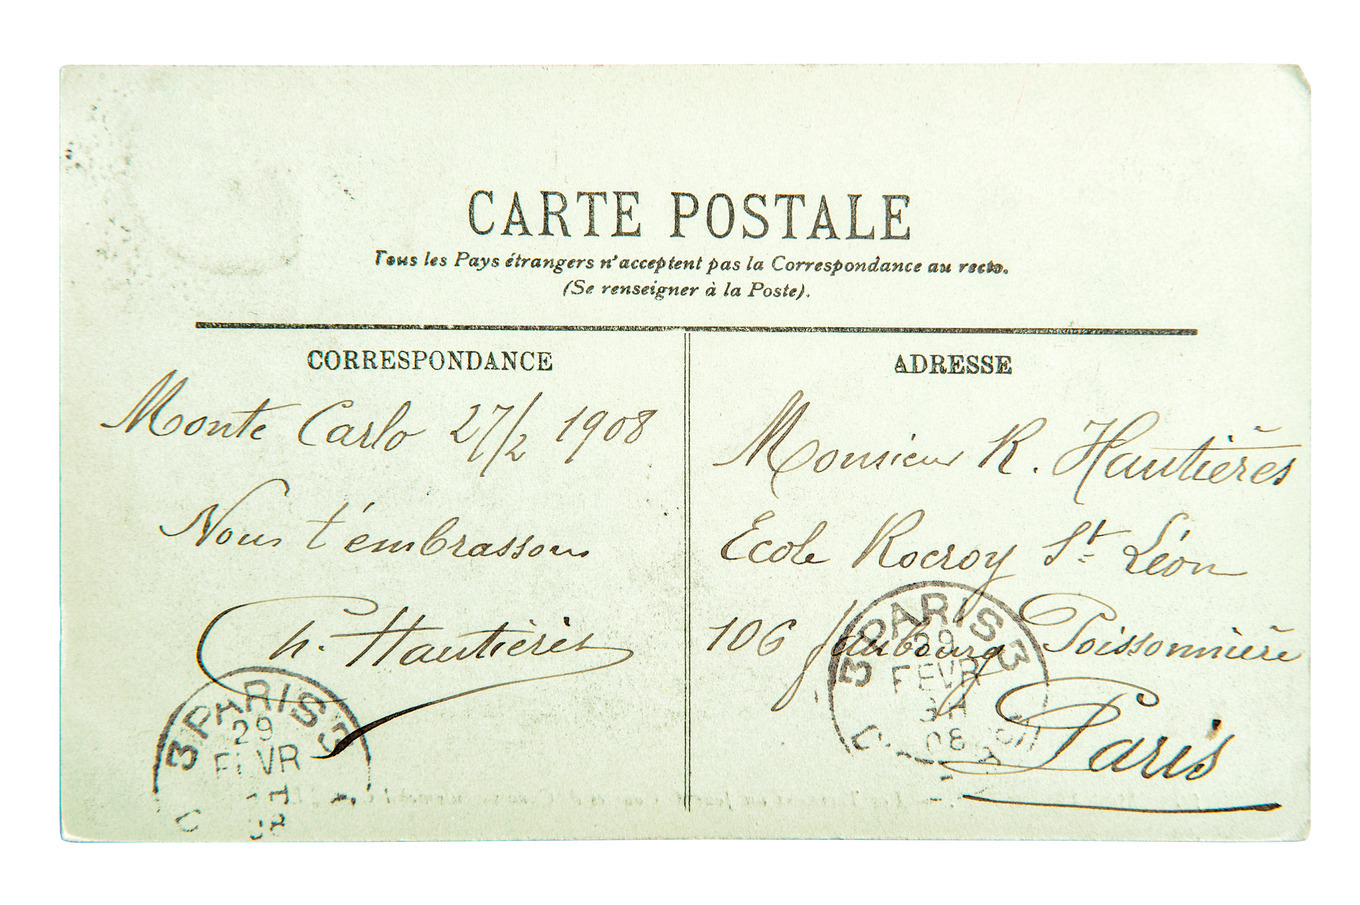 CARTE POSTALE
Tous les Pays étrangers n'acceptent pas la Correspondance au recto.
(Se renseigner à la Poste).
CORRESPONDANCE
Monte Carlo 27/2 1908
Nous t'embrassons
h. Hautières
3 PARIS 3
29
FEVR
08
ADRESSE
Monsieur R. Hautières
Ecole Rocroy St Léon
106 faubourg Poissonnière
Paris
3 PARIS 3
29
FEVR
08